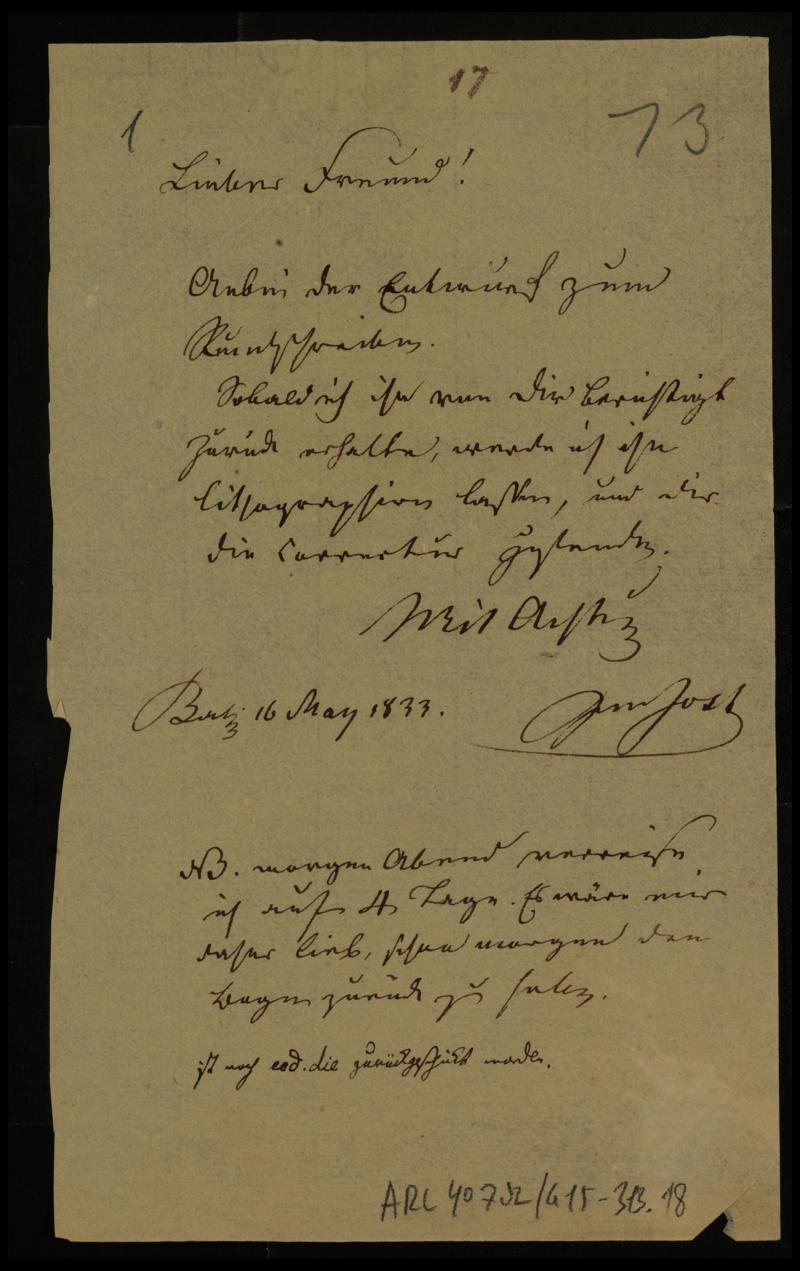 17
1
73
Lieber Freund!
Anbei der Entwurf zum
Rundschreiben.
Sobald ich ihn von Dir berichtigt
zurück erhalte, werde ich ihn
lithographiren lassen, und dir
die Correctur zusenden.
Mit Achtung
16 May 1833.
Jost
NB. morgen Abend verreise
ich auf 4 Tage. Es wäre mir
daher lieb, schon morgen den
Bogen zurück zu haben.
ist noch eod. die zurückgeschickt worden.